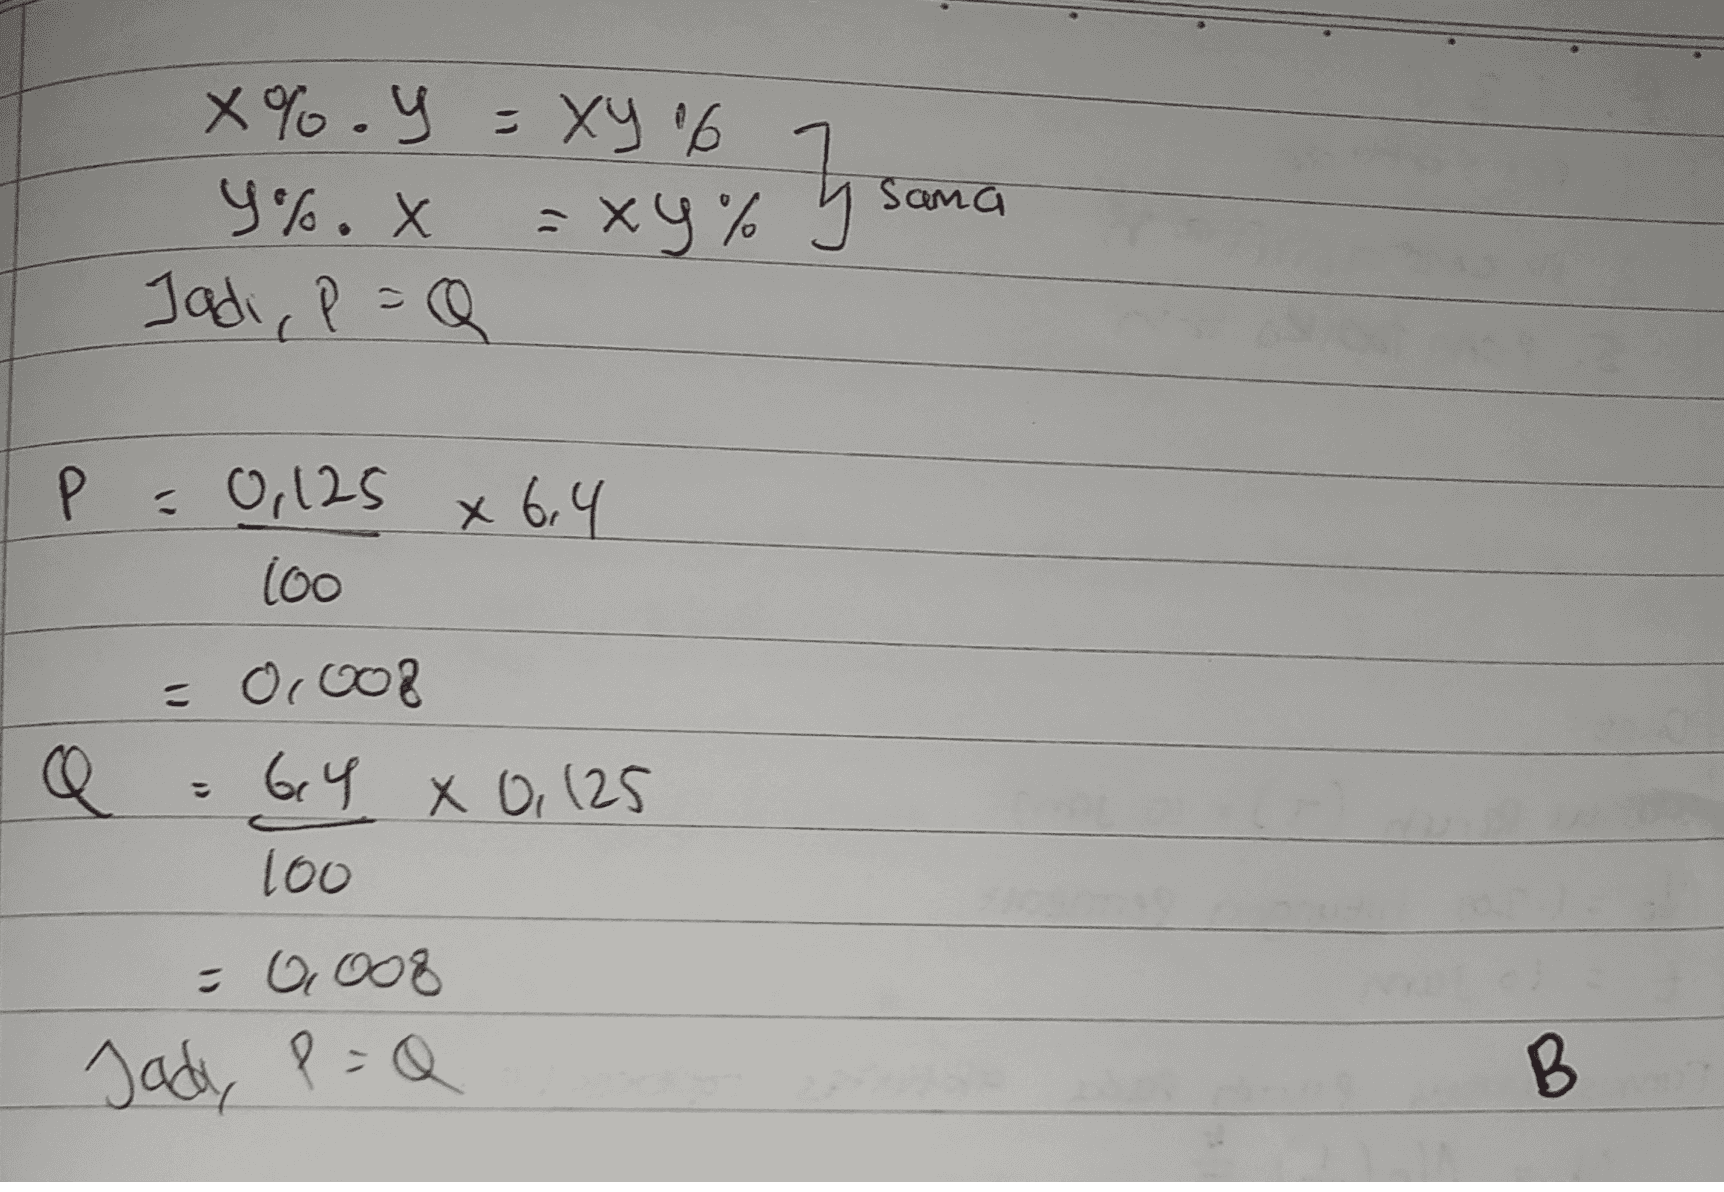 x% . y = xy %
y% . x = xy % } sama
Jadi, P = Q
P = 0,125 x 6,4
100
= 0,008
Q = 6,4 x 0,125
100
= 0,008
Jadi, P = Q
B